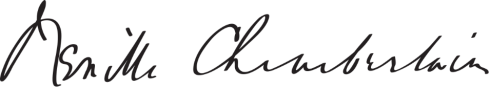 Neville Chamberlain